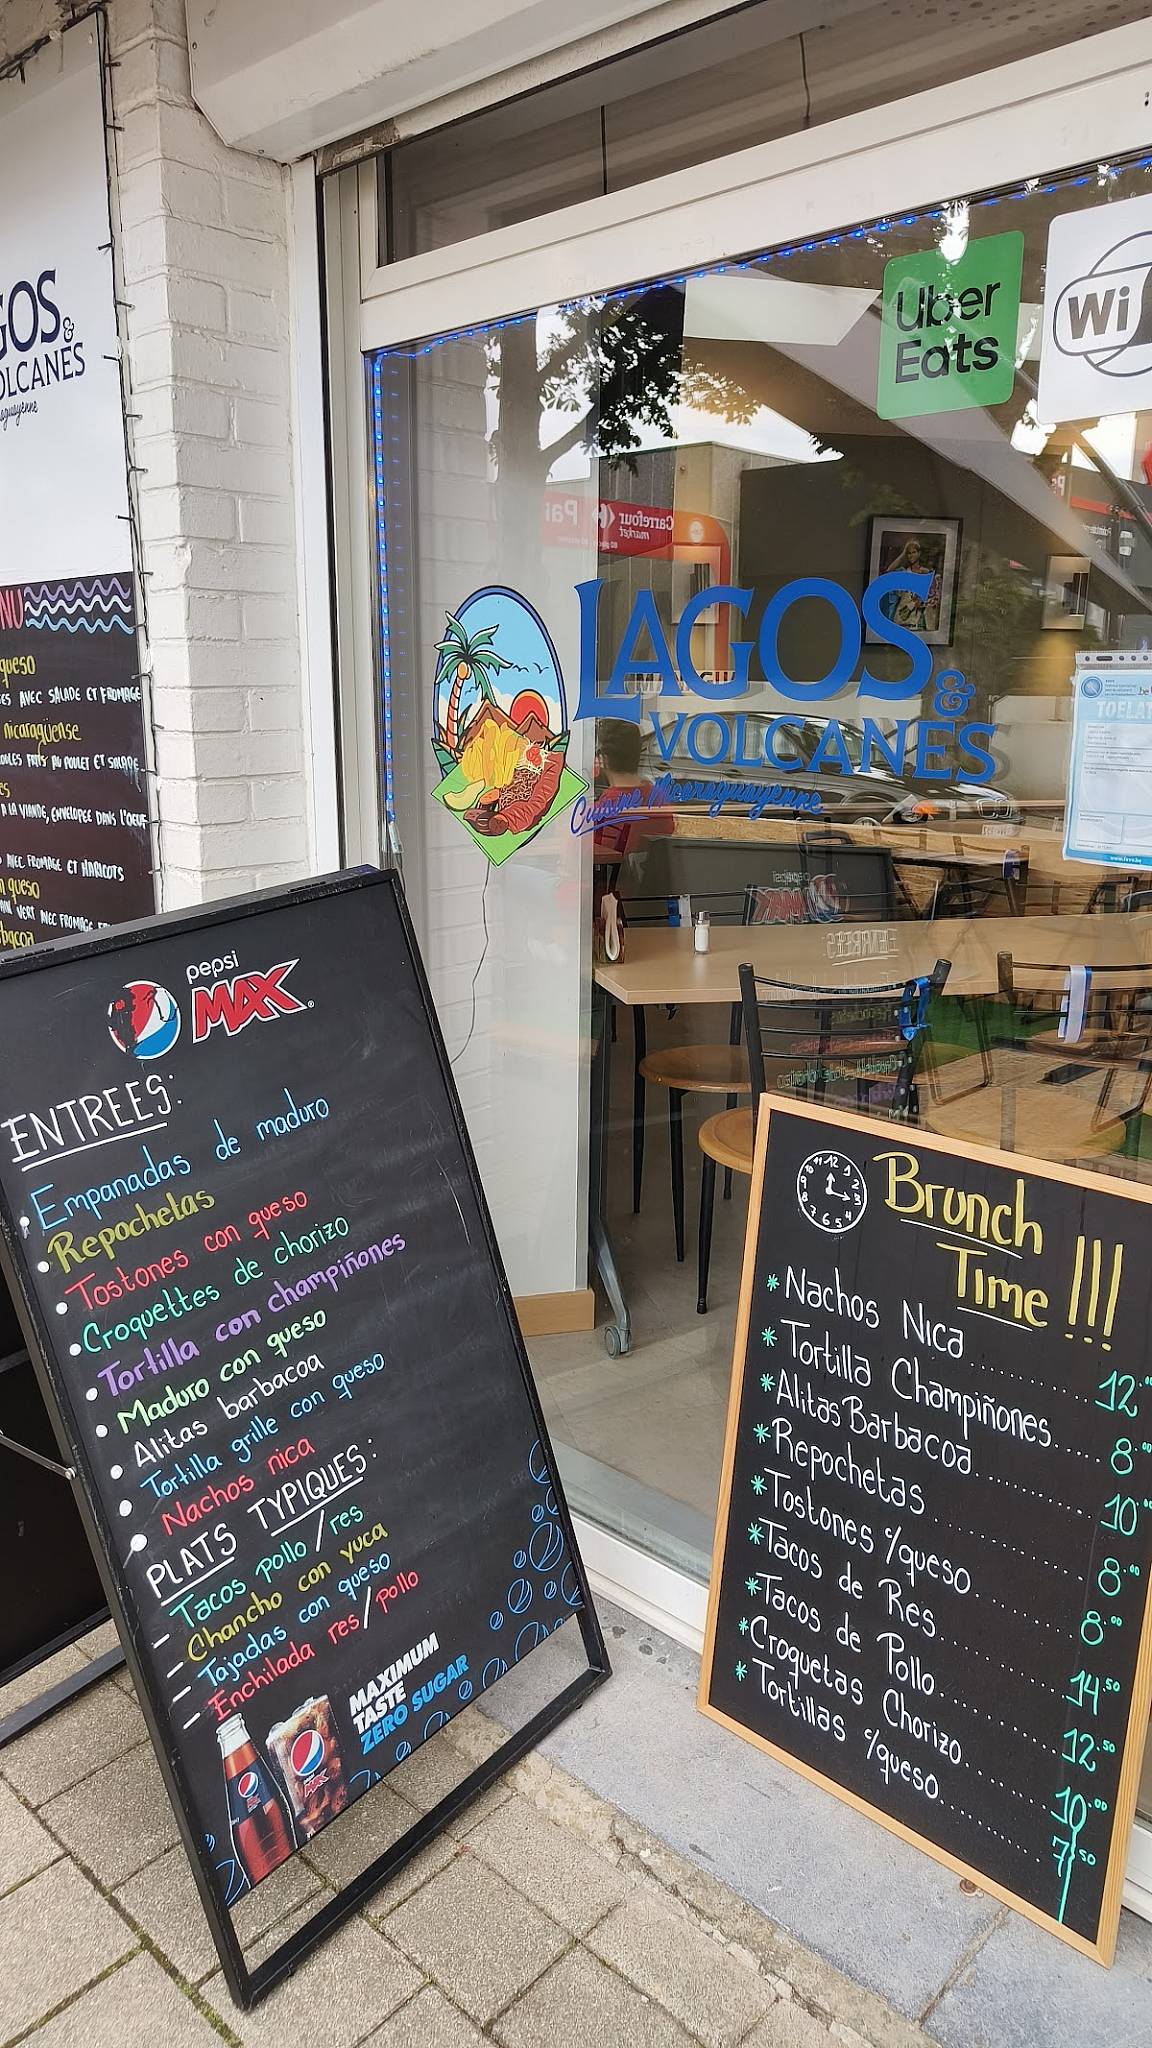 GOS
&
OLCANES
NU
queso
ES AVEC SALADE ET FROMAGE
nicaragüense
A LA VIANDE, ENVELOPEE DANS L'OEUF
AVEC FROMAGE ET HARICOTS
queso
VERT AVEC FROMAGE
Uber
Eats
Wi
Carrefour
market
LAGOS
&
VOLCANES
Cuisine Nicaraguayenne
www.favv.be
pepsi
MAX
ENTREES:
Empanadas de maduro
Repochetas
Tostones con queso
Croquettes de chorizo
Tortilla con champiñones
Maduro con queso
Alitas barbacoa
Tortilla grille con queso
Nachos nica
PLATS TYPIQUES:
- Tacos pollo / res
- Chancho con yuca
- Tajadas con queso
- Enchilada res / pollo
MAXIMUM
TASTE
ZERO SUGAR
11 12 1 2 3 4 5 6 7 8 9 10
Brunch
Time !!!
* Nachos Nica ........ 12.00
* Tortilla Champiñones .... 8.00
* Alitas Barbacoa ........ 10.00
* Repochetas ........ 8.00
* Tostones c/queso ........ 8.00
* Tacos de Res ........ 14.50
* Tacos de Pollo ........ 12.50
* Croquetas Chorizo ........ 10.00
* Tortillas c/queso ........ 7.50